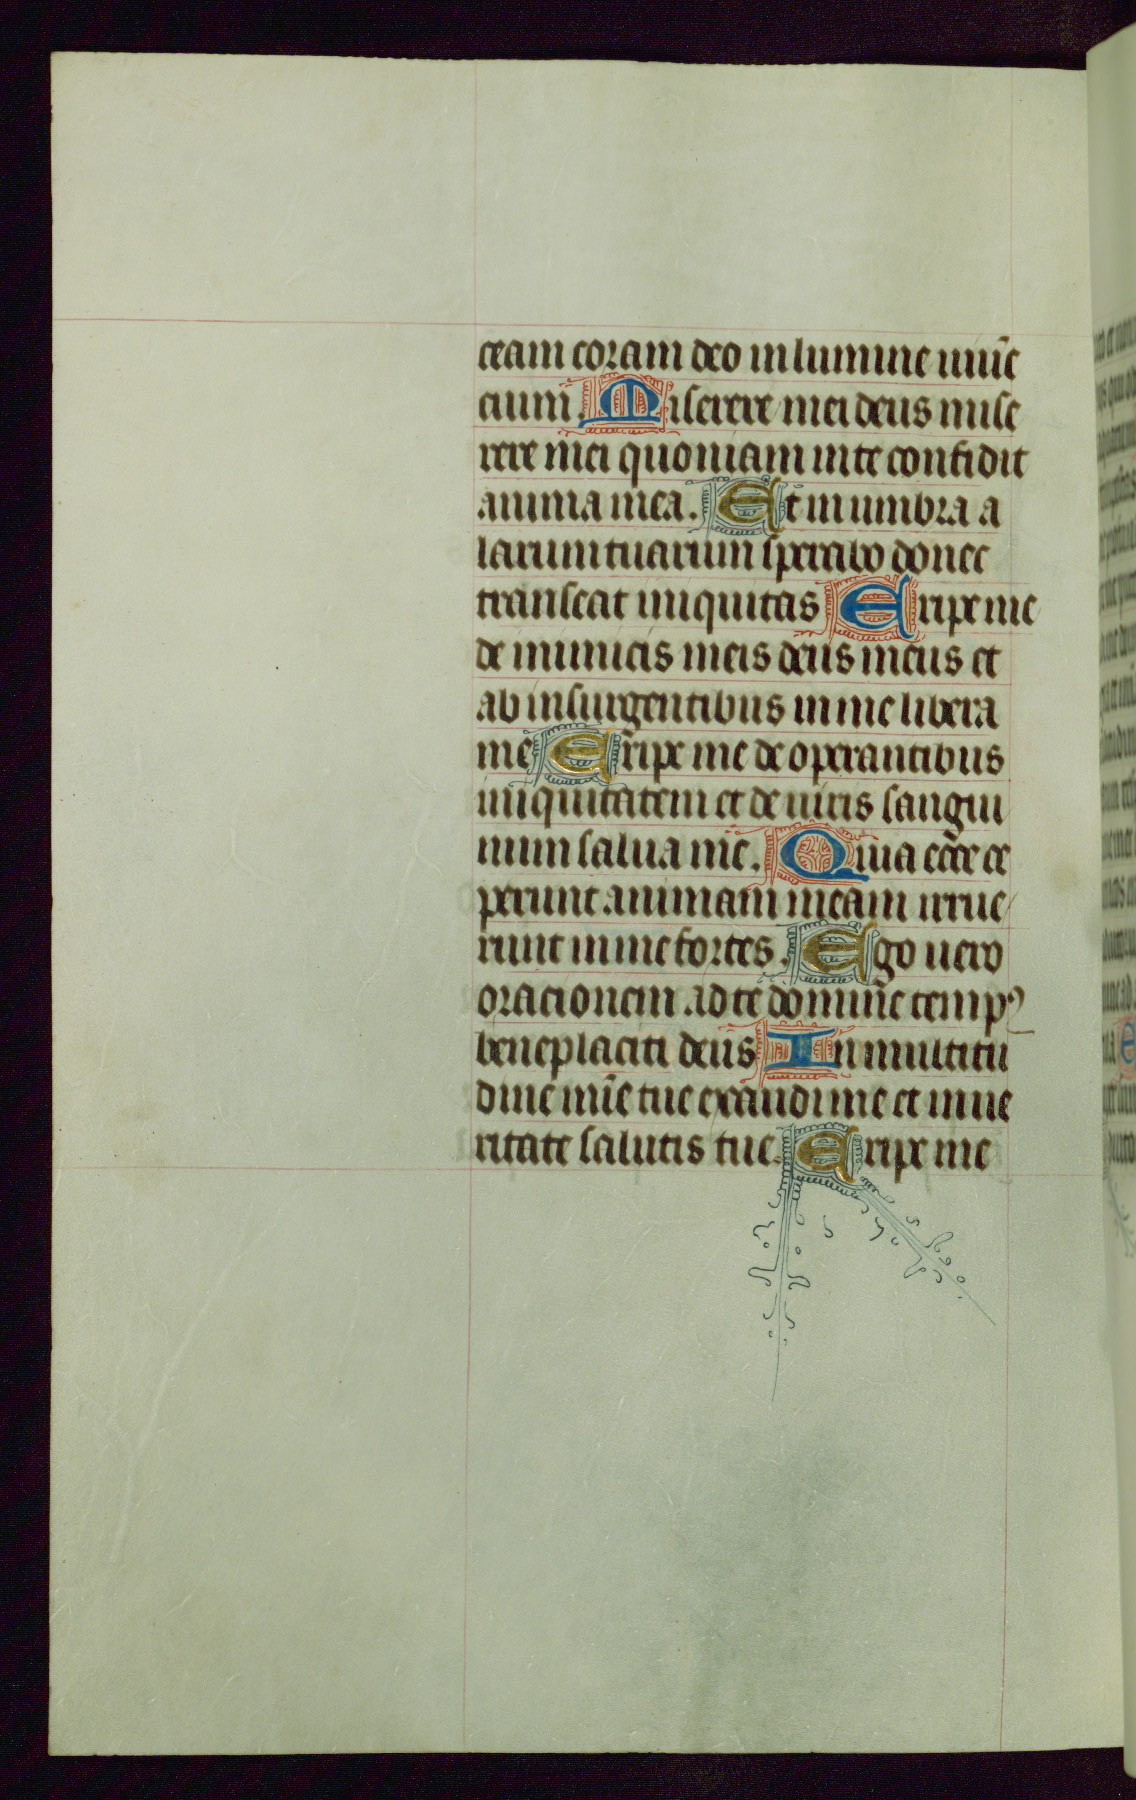 ceam coram deo in lumine uiuē
cium. Miserere mei deus mise
rere mei quoniam in te confidit
anima mea. Et in umbra a
larum tuarum sperabo donec
transeat iniquitas Eripe me
de inimicis meis deus meus et
ab insurgentibus in me libera
me Eripe me de operantibus
iniquitatem et de uiris sangui
num salua me. Quia ecce ce
perunt animam meam irrue
runt in me fortes. Ego uero
oracionem ad te domine tempꝰ
beneplaciti deus In multitu
dine mīe tue exaudi me et in ue
ritate salutis tue. Eripe me